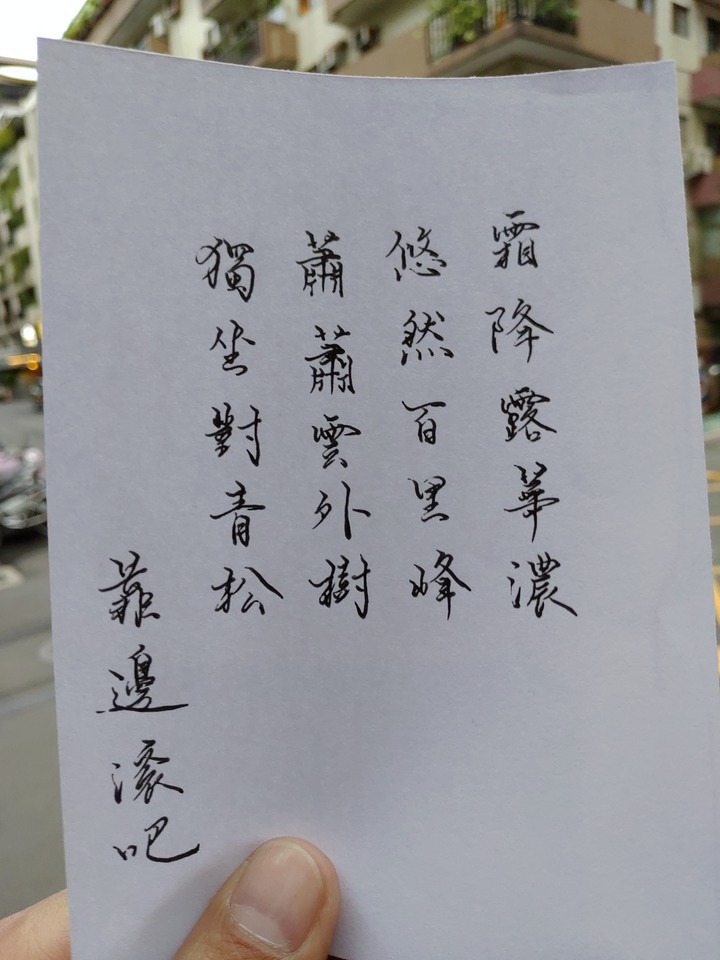 霜降露華濃
悠然百里峰
蕭蕭雲外樹
獨坐對青松
靠邊滾吧